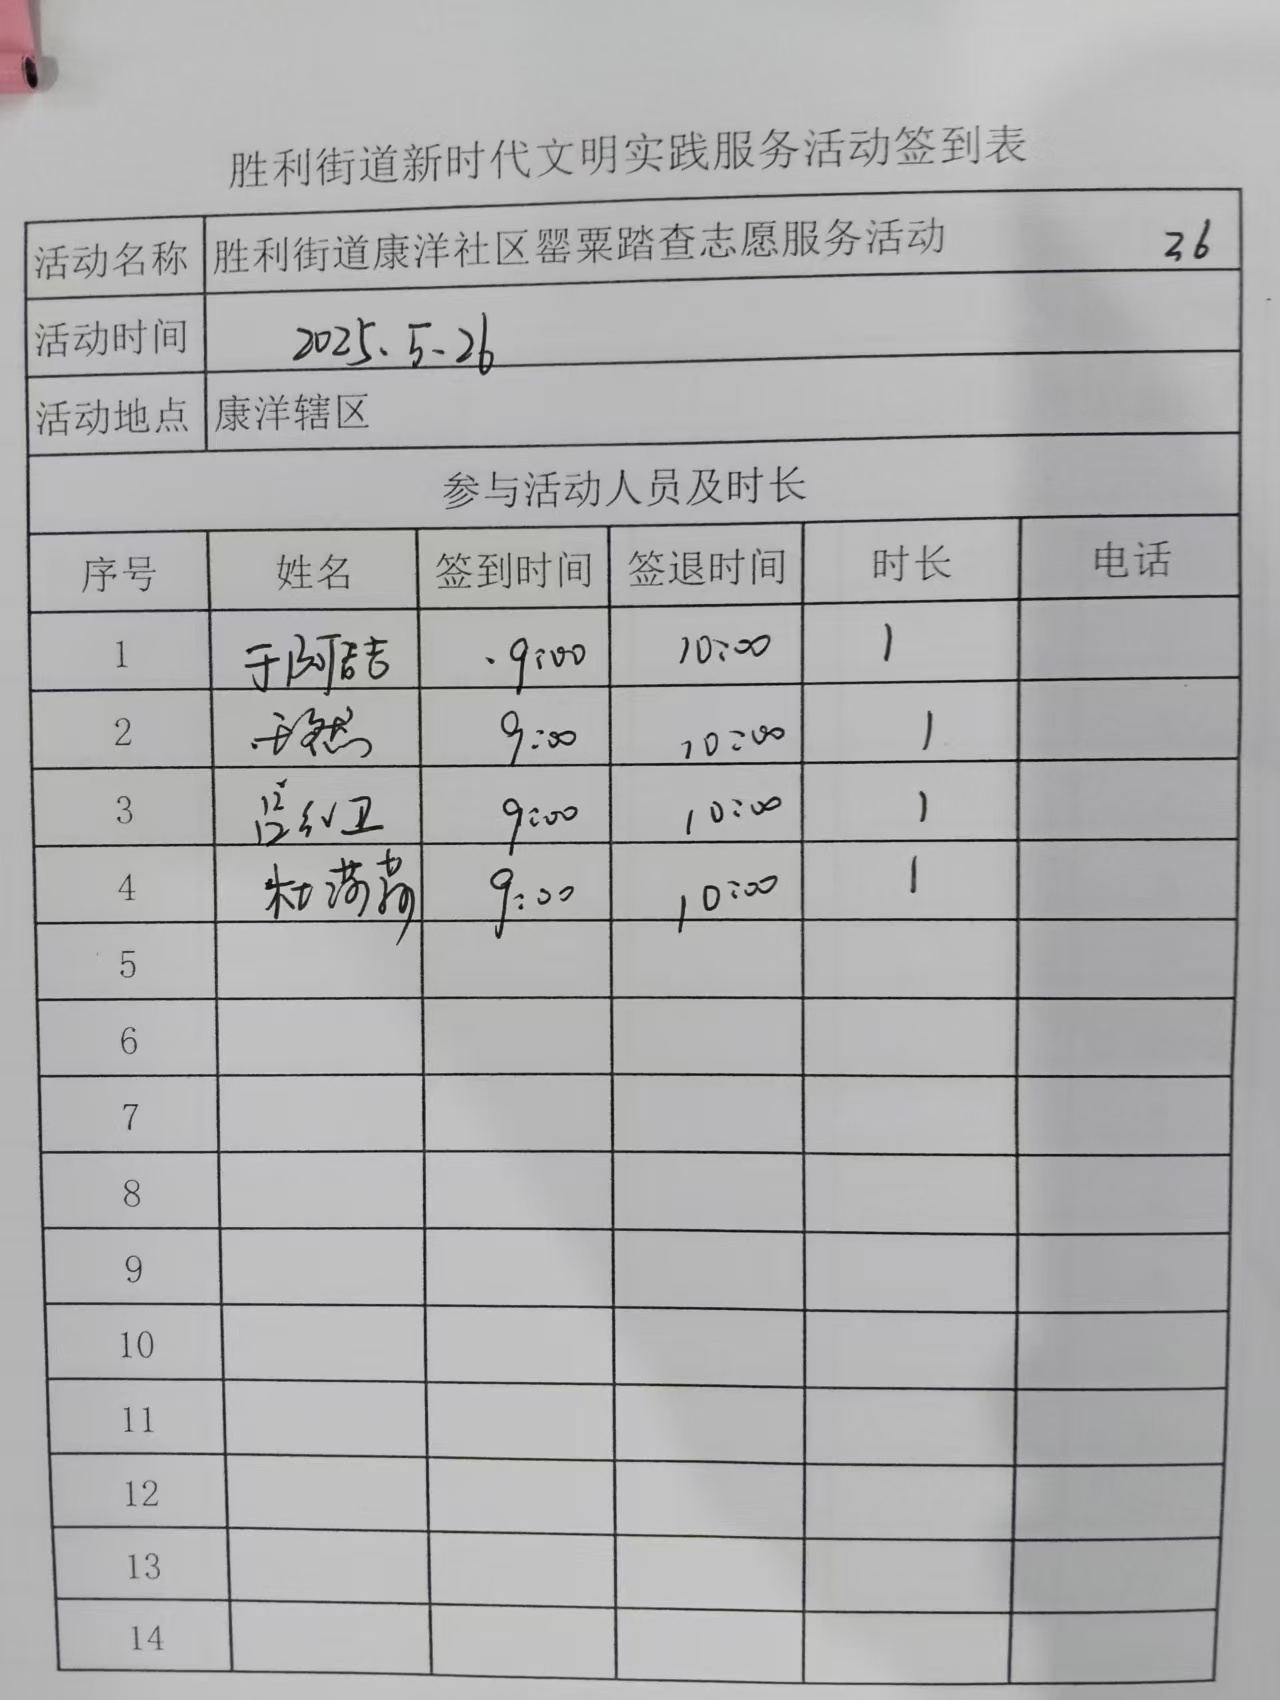 胜利街道新时代文明实践服务活动签到表
活动名称 胜利街道康洋社区罂粟踏查志愿服务活动 26
活动时间 2025.5.26
活动地点 康洋辖区
参与活动人员及时长
序号 姓名 签到时间 签退时间 时长 电话
1 于阿喆 9:00 10:00 1
2 9:00 10:00 1
3 宫红卫 9:00 10:00 1
4 杜荷荷 9:00 10:00 1
5
6
7
8
9
10
11
12
13
14